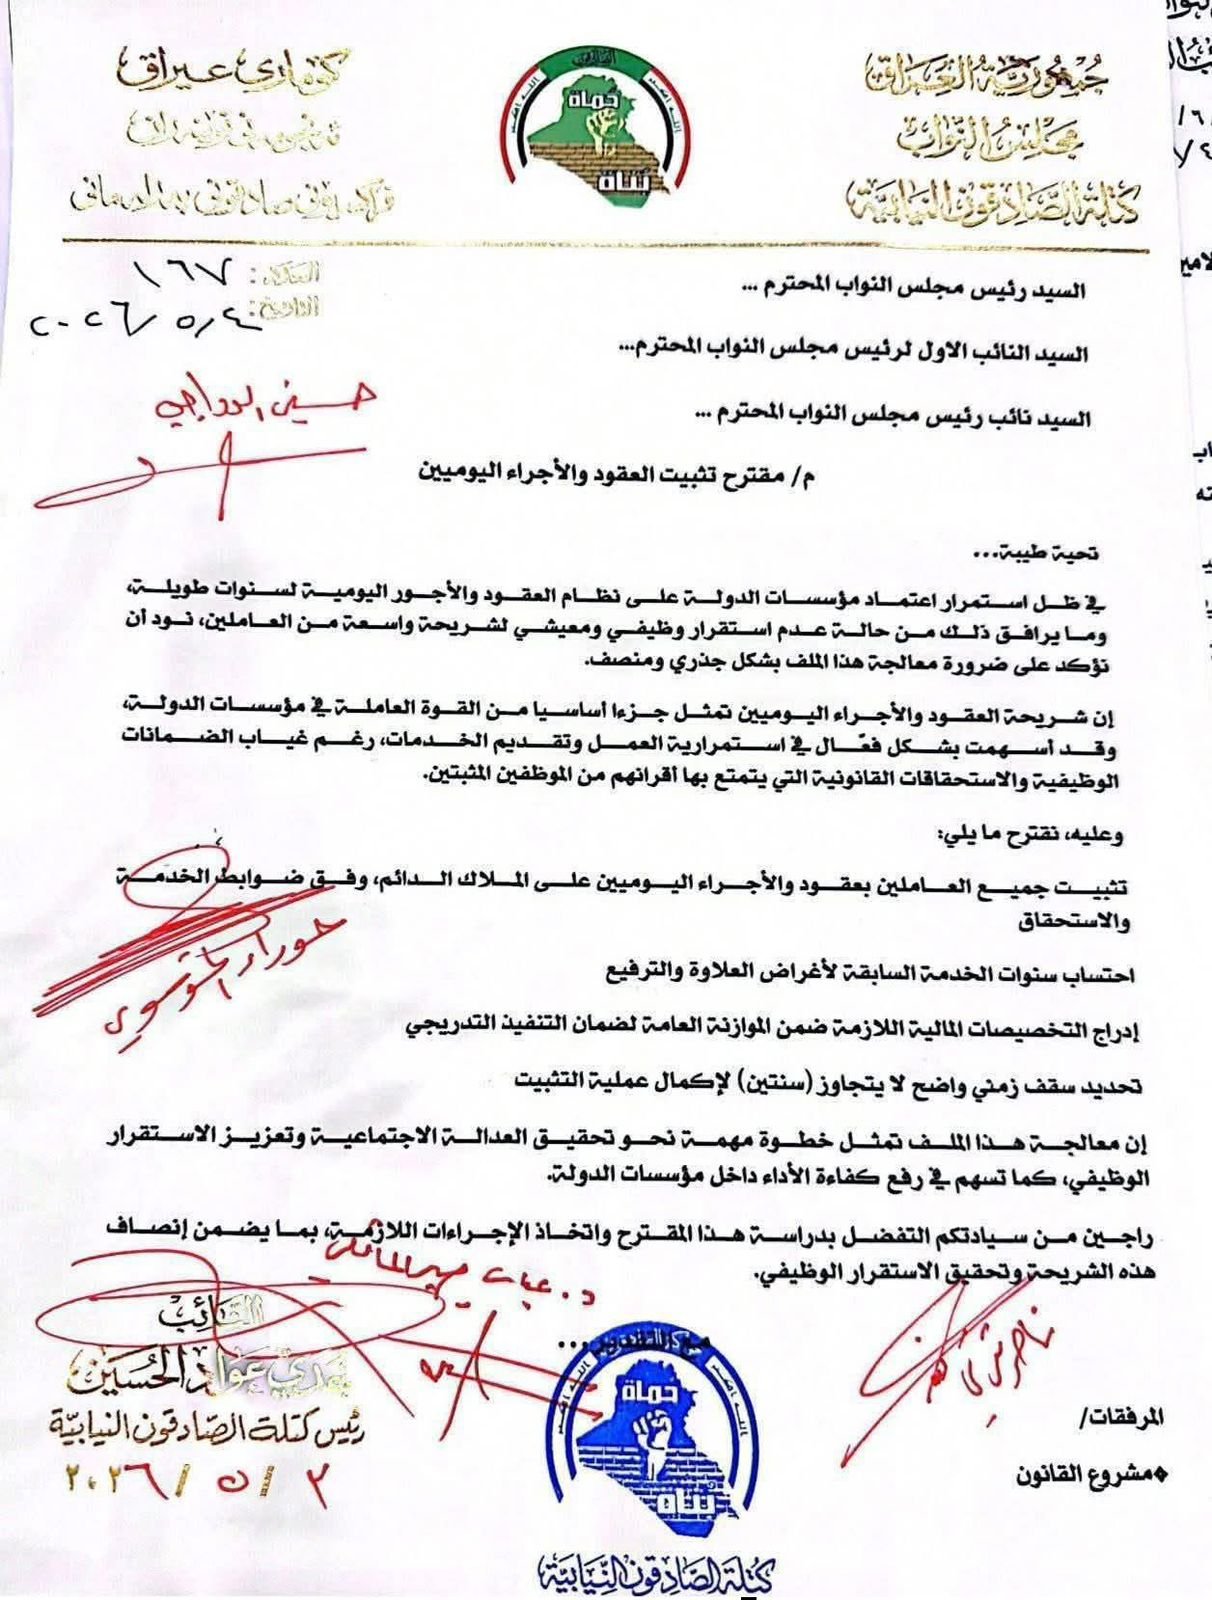 جمهورية العراق
مجلس النواب
كتلة الصادقون النيابية
كوماري عيراق
الصادقون
حماة
بناة
الله اكبر
الله اكبر
العدد: ١٦٧
التاريخ: ٢٠٢٦/٥/٤
السيد رئيس مجلس النواب المحترم ...
السيد النائب الاول لرئيس مجلس النواب المحترم...
السيد نائب رئيس مجلس النواب المحترم ...
م/ مقترح تثبيت العقود والأجراء اليوميين
تحية طيبة...
في ظل استمرار اعتماد مؤسسات الدولة على نظام العقود والأجور اليومية لسنوات طويلة،
وما يرافق ذلك من حالة عدم استقرار وظيفي ومعيشي لشريحة واسعة من العاملين، نود أن
نؤكد على ضرورة معالجة هذا الملف بشكل جذري ومنصف.
إن شريحة العقود والأجراء اليوميين تمثل جزءا أساسيا من القوة العاملة في مؤسسات الدولة،
وقد أسهمت بشكل فعّال في استمرارية العمل وتقديم الخدمات، رغم غياب الضمانات
الوظيفية والاستحقاقات القانونية التي يتمتع بها أقرانهم من الموظفين المثبتين.
وعليه، نقترح ما يلي:
تثبيت جميع العاملين بعقود والأجراء اليوميين على الملاك الدائم، وفق ضوابط الخدمة
والاستحقاق
حوراء الموسوي
احتساب سنوات الخدمة السابقة لأغراض العلاوة والترفيع
إدراج التخصيصات المالية اللازمة ضمن الموازنة العامة لضمان التنفيذ التدريجي
تحديد سقف زمني واضح لا يتجاوز (سنتين) لإكمال عملية التثبيت
إن معالجة هذا الملف تمثل خطوة مهمة نحو تحقيق العدالة الاجتماعية وتعزيز الاستقرار
الوظيفي، كما تسهم في رفع كفاءة الأداء داخل مؤسسات الدولة.
راجين من سيادتكم التفضل بدراسة هذا المقترح واتخاذ الإجراءات اللازمة، بما يضمن إنصاف
هذه الشريحة وتحقيق الاستقرار الوظيفي.
مع التقدير ...
النائب
عواد الحسين
رئيس كتلة الصادقون النيابية
٢٠٢٦/٥/٣
المرفقات/
❖مشروع القانون
حماة
بناة
الله اكبر
الله اكبر
كتلة الصادقون النيابية